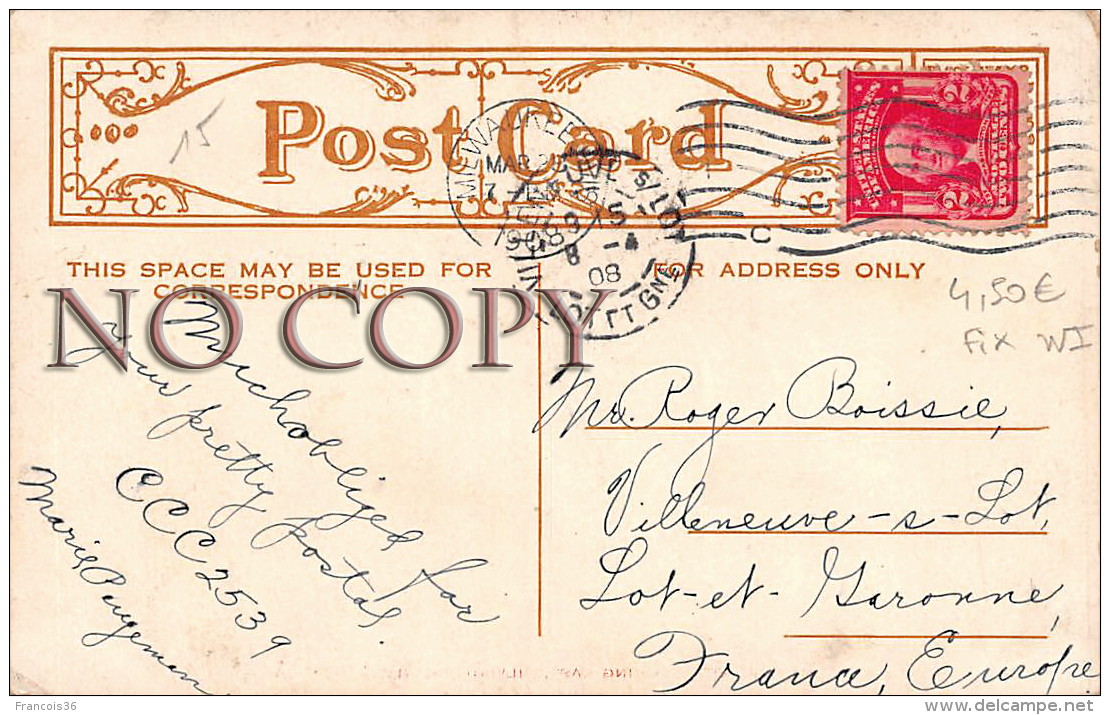 Post Card
THIS SPACE MAY BE USED FOR
CORRESPONDENCE
FOR ADDRESS ONLY
15
MILWAUKEE
MAR
1908
8 - 4
08
C
4,50€
Fix WI
NO COPY
Much obliged for
your pretty postal.
CCC 2539
Marie
Mr. Roger Boissie,
Villeneuve-s-Lot,
Lot-et-Garonne,
France, Europe
Francois36
delcampe.net